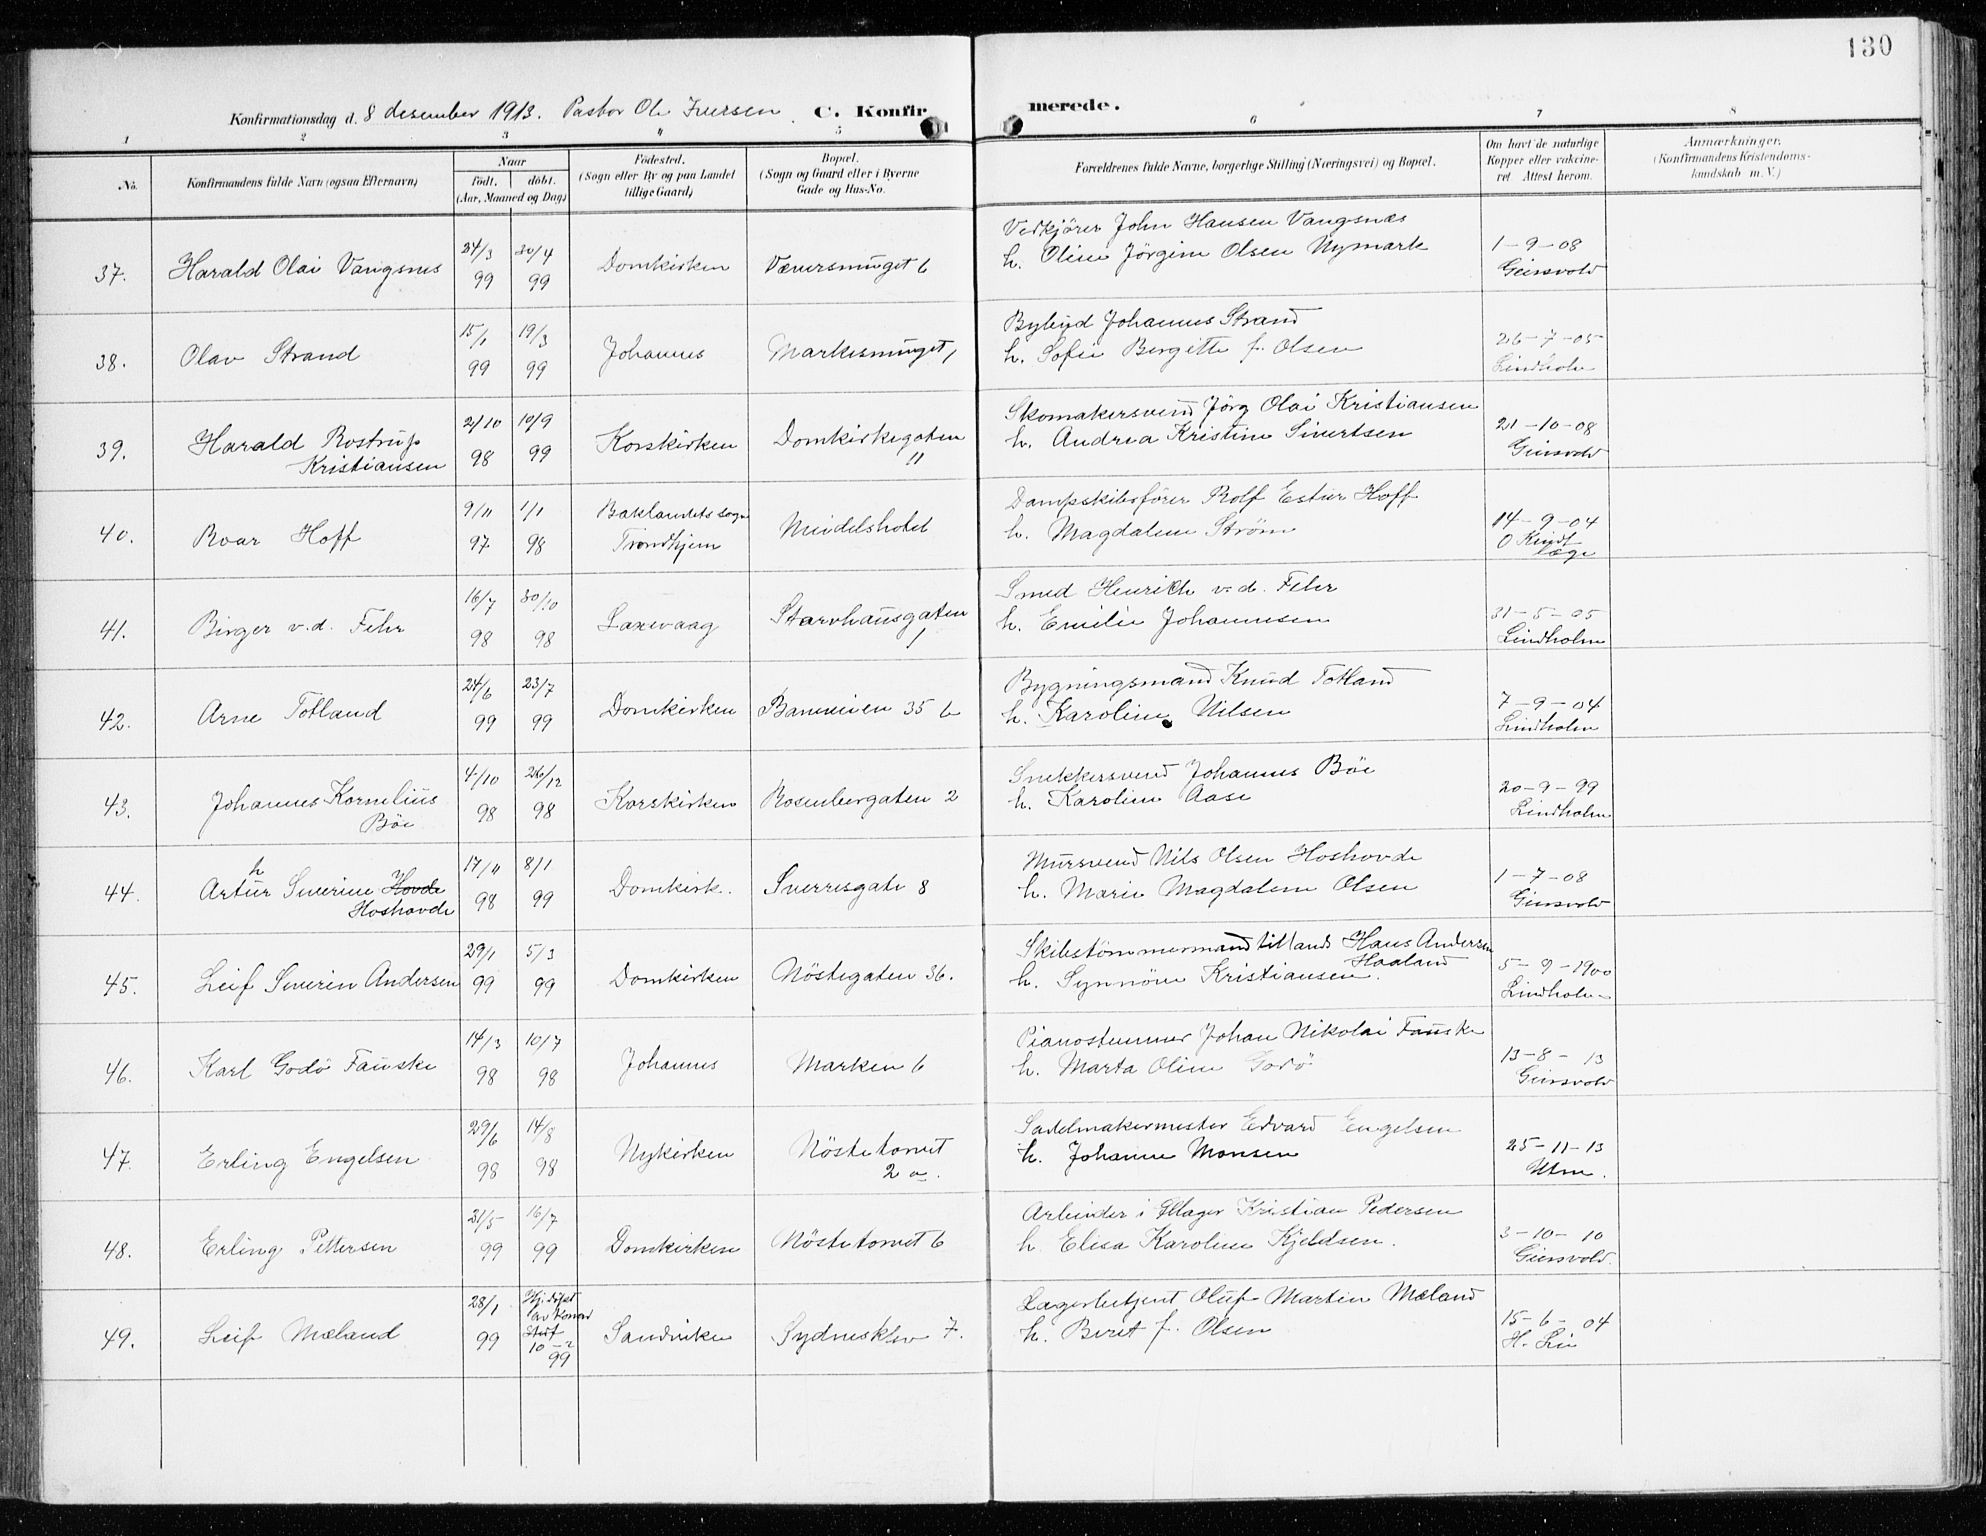 130
Konfirmationsdag d. 8 desember 1913. Pastor Ole Iversen. C. Konfirmerede.
1 2 3 4 5 6 7 8
No.
Konfirmandens fulde Navn (ogsaa Efternavn)
Naar
födt. döbt.
(Aar, Maaned og Dag)
Födested.
(Sogn eller By og paa Landet
tillige Gaard)
Bopæl.
(Sogn og Gaard eller i Byerne
Gade og Hus-No.
Forældrenes fulde Navne, borgerlige Stilling (Næringsvei) og Bopæl.
Om havt de naturlige
Kopper eller vakcine-
ret. Attest herom.
Anmærkninger.
(Konfirmandens Kristendoms-
kundskab m. V.)
37. Harald Olai Vangsnes 24/3 99 30/4 99 Domkirken Væversmuget 6
Vedkjører John Hansen Vangsnæs
h. Oline Jörgine Olsen Nymark
1-9-08
Geirsvold
38. Olav Strand 15/1 99 19/3 99 Johannes Markesmuget 1
Bybud Johannes Strand
h. Sofie Bergitte f. Olsen
26-7-05
Lindholm
39. Harald Rostrup
Kristiansen 21/10 98 10/9 99 Korskirken Domkirkegaten
11
Skomakersvend Jörg Olai Kristiansen
h. Andrea Kristine Sivertsen
21-10-08
Geirsvold
40. Roar Hoff 9/11 97 1/1 98 Baklandets sogn
Trondhjem
Dampskibsförer Rolf Ester Hoff
h. Magdalene Ström
14-9-04
læge
41. Birger v.d. Fehr 16/7 98 30/10 98 Laxevaag Starvhausgaten
1
Smed Henrich v.d. Fehr
h. Emilie Johannesen
31-5-05
Lindholm
42. Arne Totland 24/6 99 23/7 99 Domkirken 35 b
Bygningsmand Knud Totland
h. Karoline Nilsen
7-9-04
Lindholm
43. Johannes Kornelius
Böe 4/10 98 26/12 98 Korskirken Rosenbergaten 2
Snekkersvend Johannes Böe
h. Karoline Aase
20-9-99
Lindholm
h
44. Artur Severine Hovde
Hoshovde 17/11 98 8/1 99 Domkirk. Sverresgate 8
Mursvend Nils Olsen Hoshovde
h. Marie Magdalene Olsen
1-7-08
Geirsvold
45. Leif Severin Andersen 29/1 99 5/3 99 Domkirken Nöstegaten 36.
Skibstömmermand tillands Hans Andersen
Haaland
h. Synnöve Kristiansen.
5-9-1900
Lindholm
46. Karl Godö Fauske 14/3 98 10/7 98 Johannes Marken 6
Pianostemmer Johan Nikolai Fauske
h. Marta Oline Godö
13-8-13
Geirsvold
47. Erling Engelsen 29/6 98 14/8 98 Nykirken Nöstetorvet
2 a.
Sadelmakermester Edvard Engelsen
h. Johanne Monsen
25-11-13
48. Erling Pettersen 31/5 99 16/7 99 Domkirken Nöstetorvet 6
Arbeider i Kristian Pedersen
h. Elisa Karoline Kjeldsen.
3-10-10
Geirsvold.
49. Leif Mæland 28/1 99 Hj. döbt
av Konrad
10-2
99 Sandviken Sydnesklev 7.
Lagerbetjent Oluf Martin Mæland
h. Beret f. Olsen
15-6-04
H. Lie